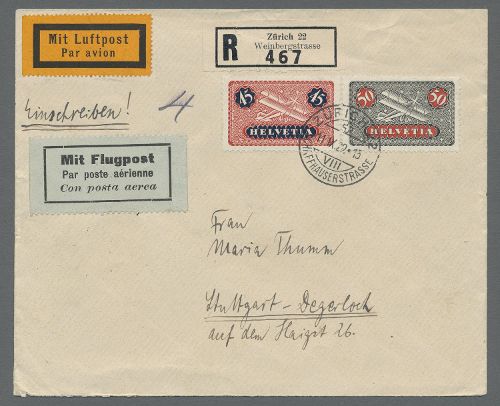 Mit Luftpost
Par avion
R
Zürich 22
Weinbergstrasse
467
Einschreiben!
4
45 45
HELVETIA
50 50
HELVETIA
VIII
Mit Flugpost
Par poste aérienne
Con posta aerea
Frau
Maria Thumm
Stuttgart-Degerloch
auf dem Haigst 26.